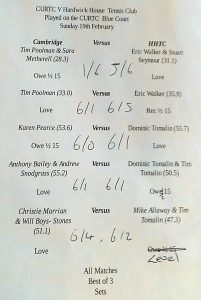 CURTC V Hardwick House Tennis Club
Played on the CURTC Blue Court
Sunday 19th February
Cambridge Versus HHTC
Tim Poolman & Sara Metherell (28.3) Versus Eric Walker & Stuart Seymour (31.1)
Owe ½ 15 1/6 5/6 Love
Tim Poolman (33.0) Versus Eric Walker (35.9)
Love 6/1 6/5 Rec ½ 15
Karen Pearce (53.6) Versus Dominic Tomalin (55.7)
Owe ½ 15 6/0 6/1 Love
Anthony Bailey & Andrew Snodgrass (55.2) Versus Dominic Tomalin & Tim Tomalin (50.5)
Love 6/1 6/1 Owe 15
Christie Marrian & Will Boys- Stones (51.1) Versus Mike Allaway & Tim Tomalin (47.3)
Love 6/4 6/2 Owe ½ 15
Level
All Matches
Best of 3
Sets